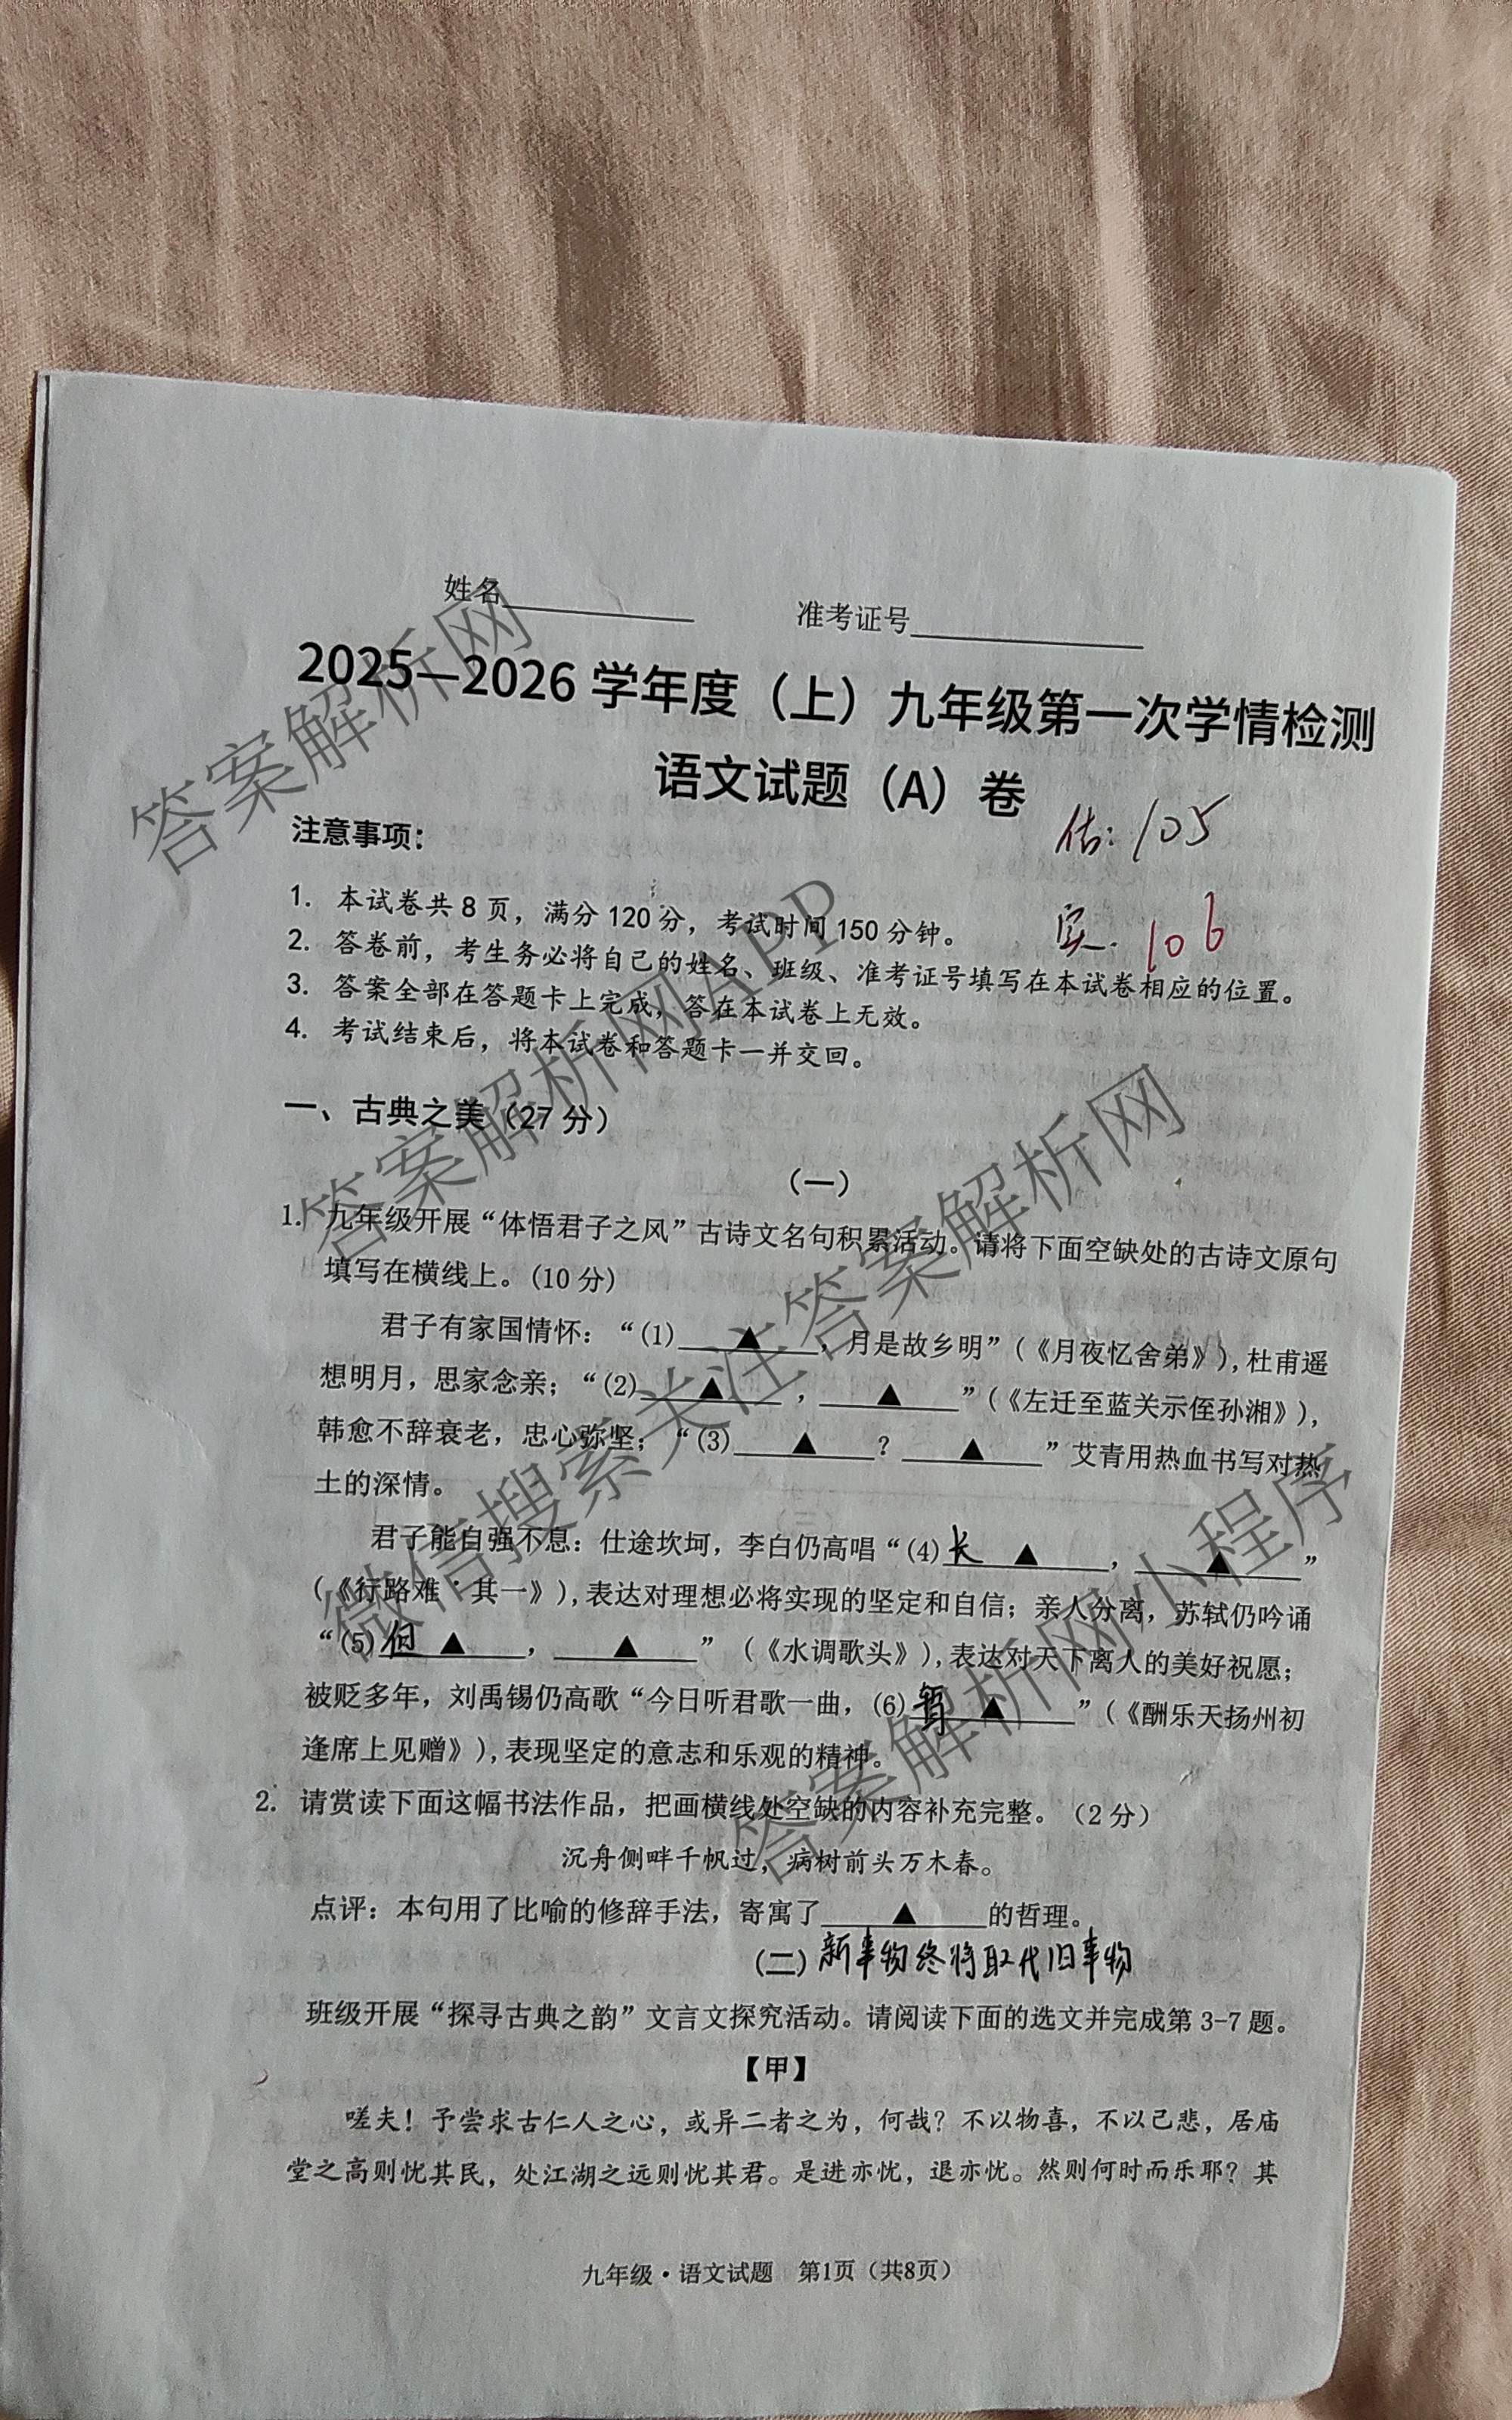 姓名
准考证号
2025—2026 学年度（上）九年级第一次学情检测
语文试题（A）卷
估：105
注意事项：
实. 106
1. 本试卷共 8 页，满分 120 分，考试时间 150 分钟。
2. 答卷前，考生务必将自己的姓名、班级、准考证号填写在本试卷相应的位置。
3. 答案全部在答题卡上完成，答在本试卷上无效。
4. 考试结束后，将本试卷和答题卡一并交回。
一、古典之美（27 分）
（一）
1. 九年级开展“体悟君子之风”古诗文名句积累活动。请将下面空缺处的古诗文原句
填写在横线上。(10 分)
君子有家国情怀：“(1) ▲ ，月是故乡明”(《月夜忆舍弟》),杜甫遥
想明月，思家念亲；“(2) ▲ ， ▲ ”(《左迁至蓝关示侄孙湘》),
韩愈不辞衰老，忠心弥坚；“(3) ▲ ？ ▲ ”艾青用热血书写对热
土的深情。
君子能自强不息：仕途坎坷，李白仍高唱“(4)长 ▲ ， ▲ ”
(《行路难·其一》),表达对理想必将实现的坚定和自信；亲人分离，苏轼仍吟诵
“(5)但 ▲ ， ▲ ” (《水调歌头》),表达对天下离人的美好祝愿；
被贬多年，刘禹锡仍高歌“今日听君歌一曲，(6)暂 ▲ ”(《酬乐天扬州初
逢席上见赠》),表现坚定的意志和乐观的精神。
2. 请赏读下面这幅书法作品，把画横线处空缺的内容补充完整。（2 分）
沉舟侧畔千帆过，病树前头万木春。
点评：本句用了比喻的修辞手法，寄寓了 ▲ 的哲理。
（二）新事物终将取代旧事物
班级开展“探寻古典之韵”文言文探究活动。请阅读下面的选文并完成第 3-7 题。
【甲】
嗟夫！予尝求古仁人之心，或异二者之为，何哉？不以物喜，不以己悲，居庙
堂之高则忧其民，处江湖之远则忧其君。是进亦忧，退亦忧。然则何时而乐耶？其
九年级·语文试题 第1页（共8页）
答案解析网
答案解析网APP
微信搜索关注答案解析网
答案解析网小程序